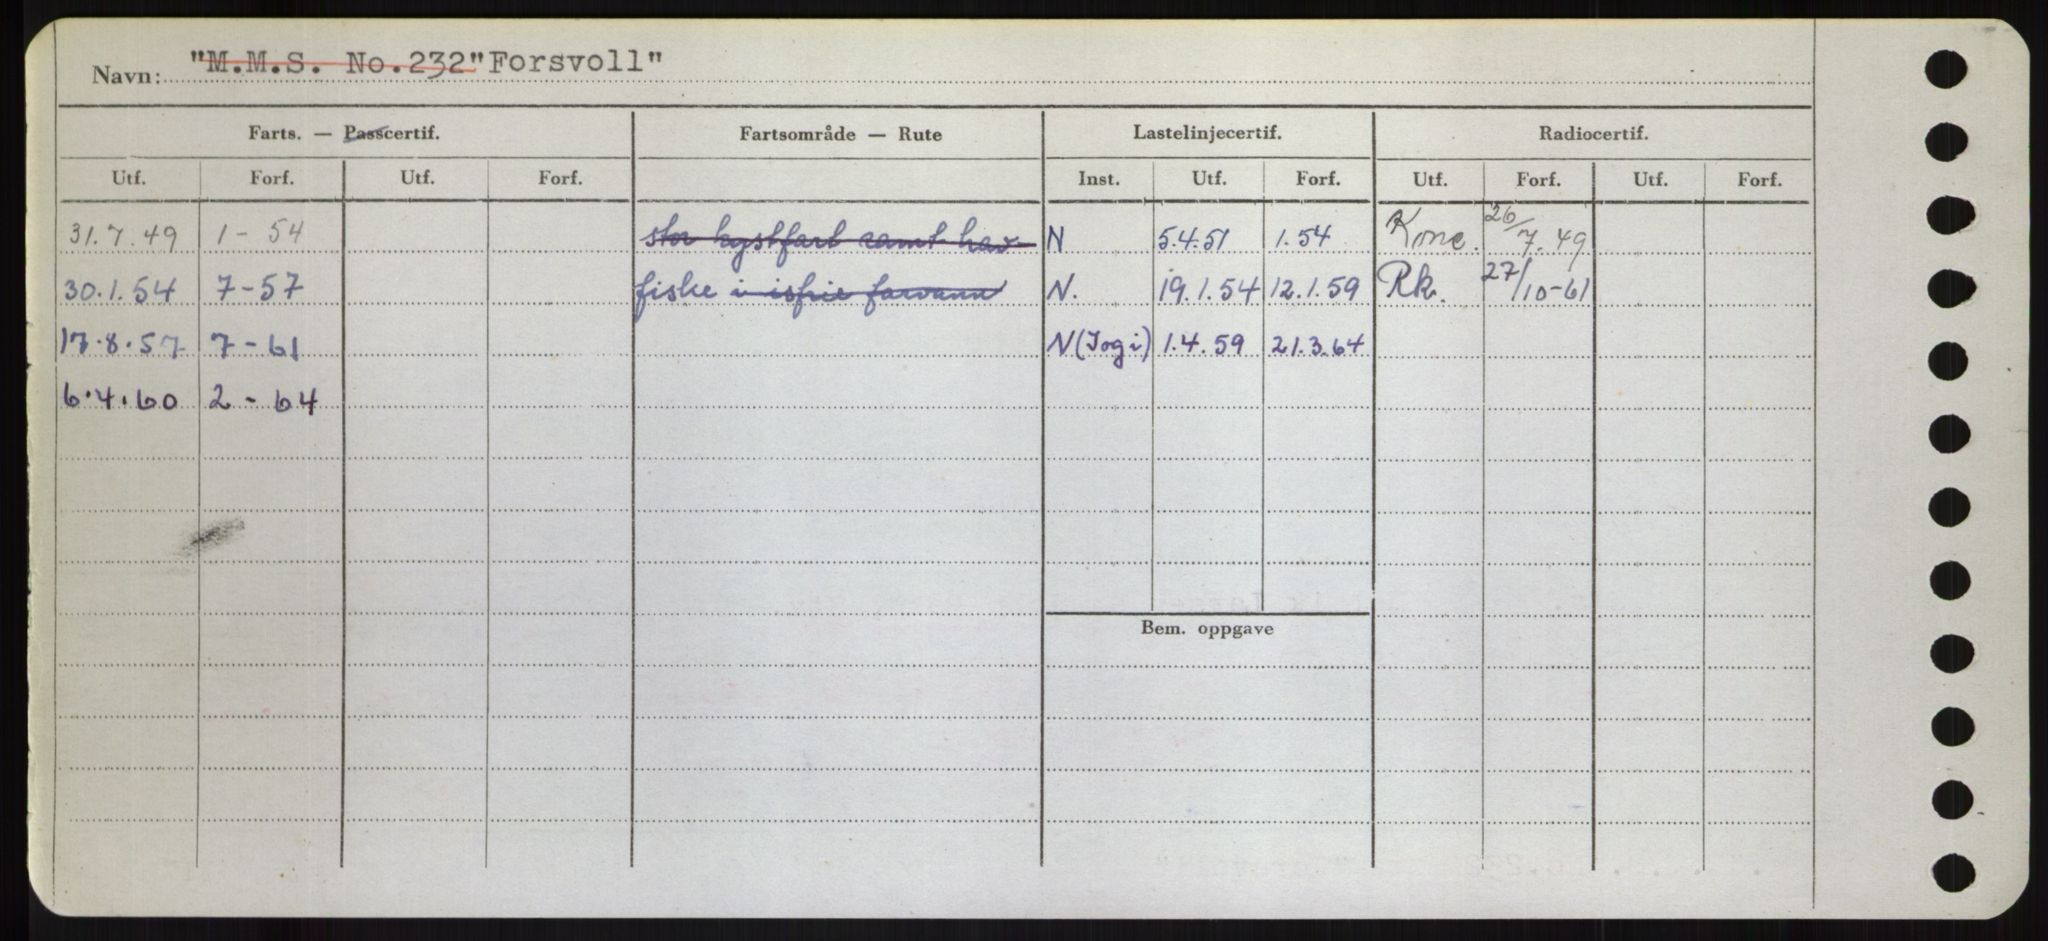 Navn: "M.M.S. No.232 "Forsvoll"
Farts. — Passcertif. Fartsområde — Rute Lastelinjecertif. Radiocertif.
Utf. Forf. Utf. Forf. Inst. Utf. Forf. Utf. Forf. Utf. Forf.
31.7.49 1 - 54 stor kystfart samt hav- N 5.4.51 1.54 Konc. 26/7.49
30.1.54 7-57 fiske i isfrie farvann N. 19.1.54 12.1.59 Rk. 27/10-61
17.8.57 7-61 N(Jogi) 1.4.59 21.3.64
6.4.60 2-64
Bem. oppgave